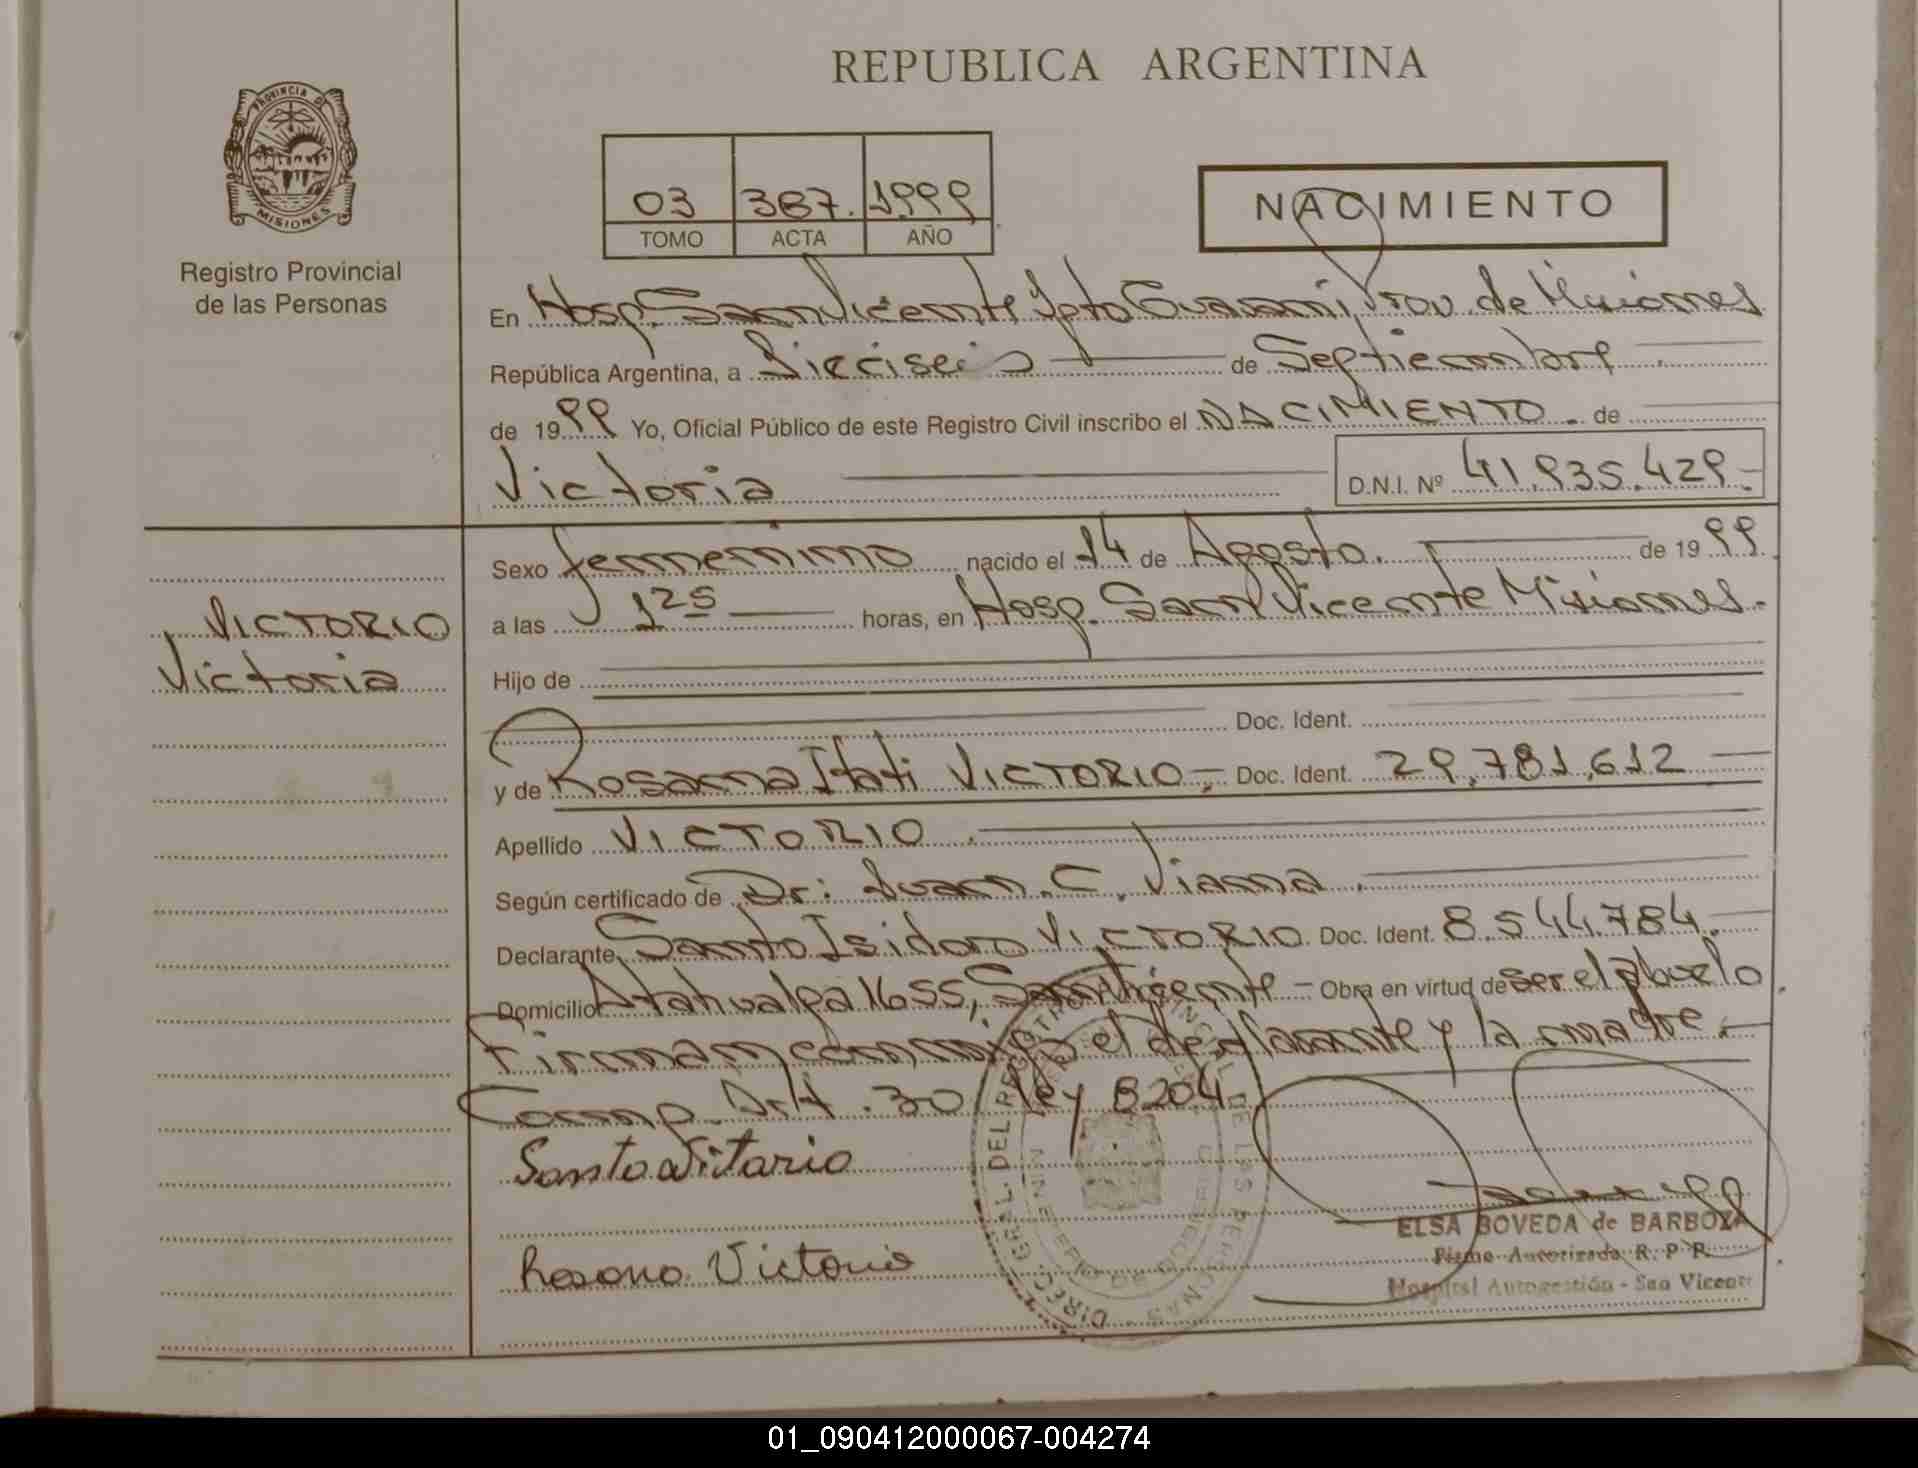 REPUBLICA ARGENTINA
PROVINCIA DE
MISIONES
Registro Provincial
de las Personas
03 387. 1999
TOMO ACTA AÑO
NACIMIENTO
En Hosp. San Vicente Dpto Guarani, Prov. de Misiones
República Argentina, a Dieciseis de Septiembre
de 1999 Yo, Oficial Público de este Registro Civil inscribo el NACIMIENTO. de
Victoria D.N.I. Nº 41.935.429.-
VICTORIO
Victoria
Sexo femenino nacido el 14 de Agosto. de 1999.
a las 1 25 horas, en Hosp. San Vicente Misiones.-
Hijo de
Doc. Ident.
y de Rosana Itati VICTORIO.- Doc. Ident. 29.781.612
Apellido VICTORIO.
Según certificado de Dr: Juan. C. Viana.
Declarante Santo Isidoro VICTORIO. Doc. Ident. 8.544.784.
Domicilio Atahualpa 1655, San Vicente - Obra en virtud de ser el abuelo.
Firman conmigo el declarante y la madre.-
Comp. Art. 30 ley 8204.
Santo Vitorio
Rosana Victorio
DIRECC. GRAL. DEL REGISTRO PROVINCIAL DE LAS PERSONAS
MINISTERIO DE GOBIERNO
ELSA BOVEDA de BARBOZA
Firma Autorizada R. P. P.
Hospital Autogestión - San Vicente
01_090412000067-004274